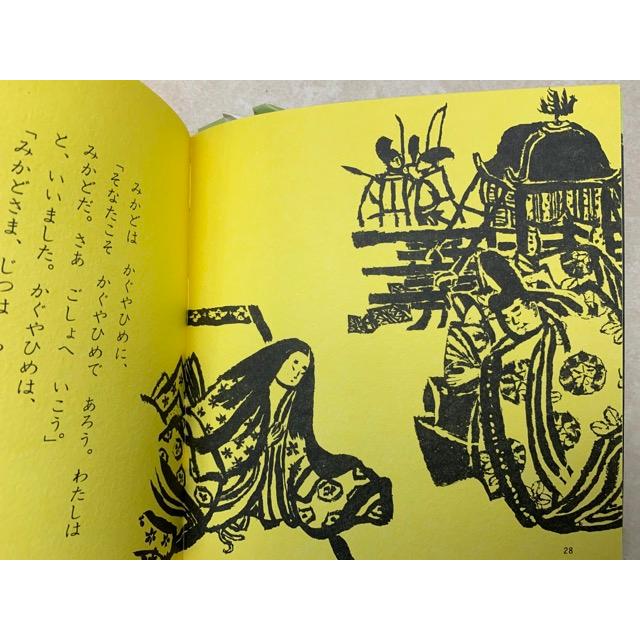 みかどは　かぐやひめに、
「そなたこそ　かぐやひめで　あろう。わたしは
みかどだ。さあ　ごしょへ　いこう。」
と、いいました。かぐやひめは、
「みかどさま、じつは
28